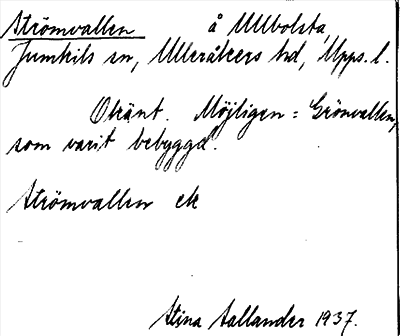 Strömvallen å Ullbolsta,
Jumkils sn, Ulleråkers hd, Upps. l.
Okänt. Möjligen = Grönvallen,
som varit bebyggd.
Strömvallen ek
Stina 1937.